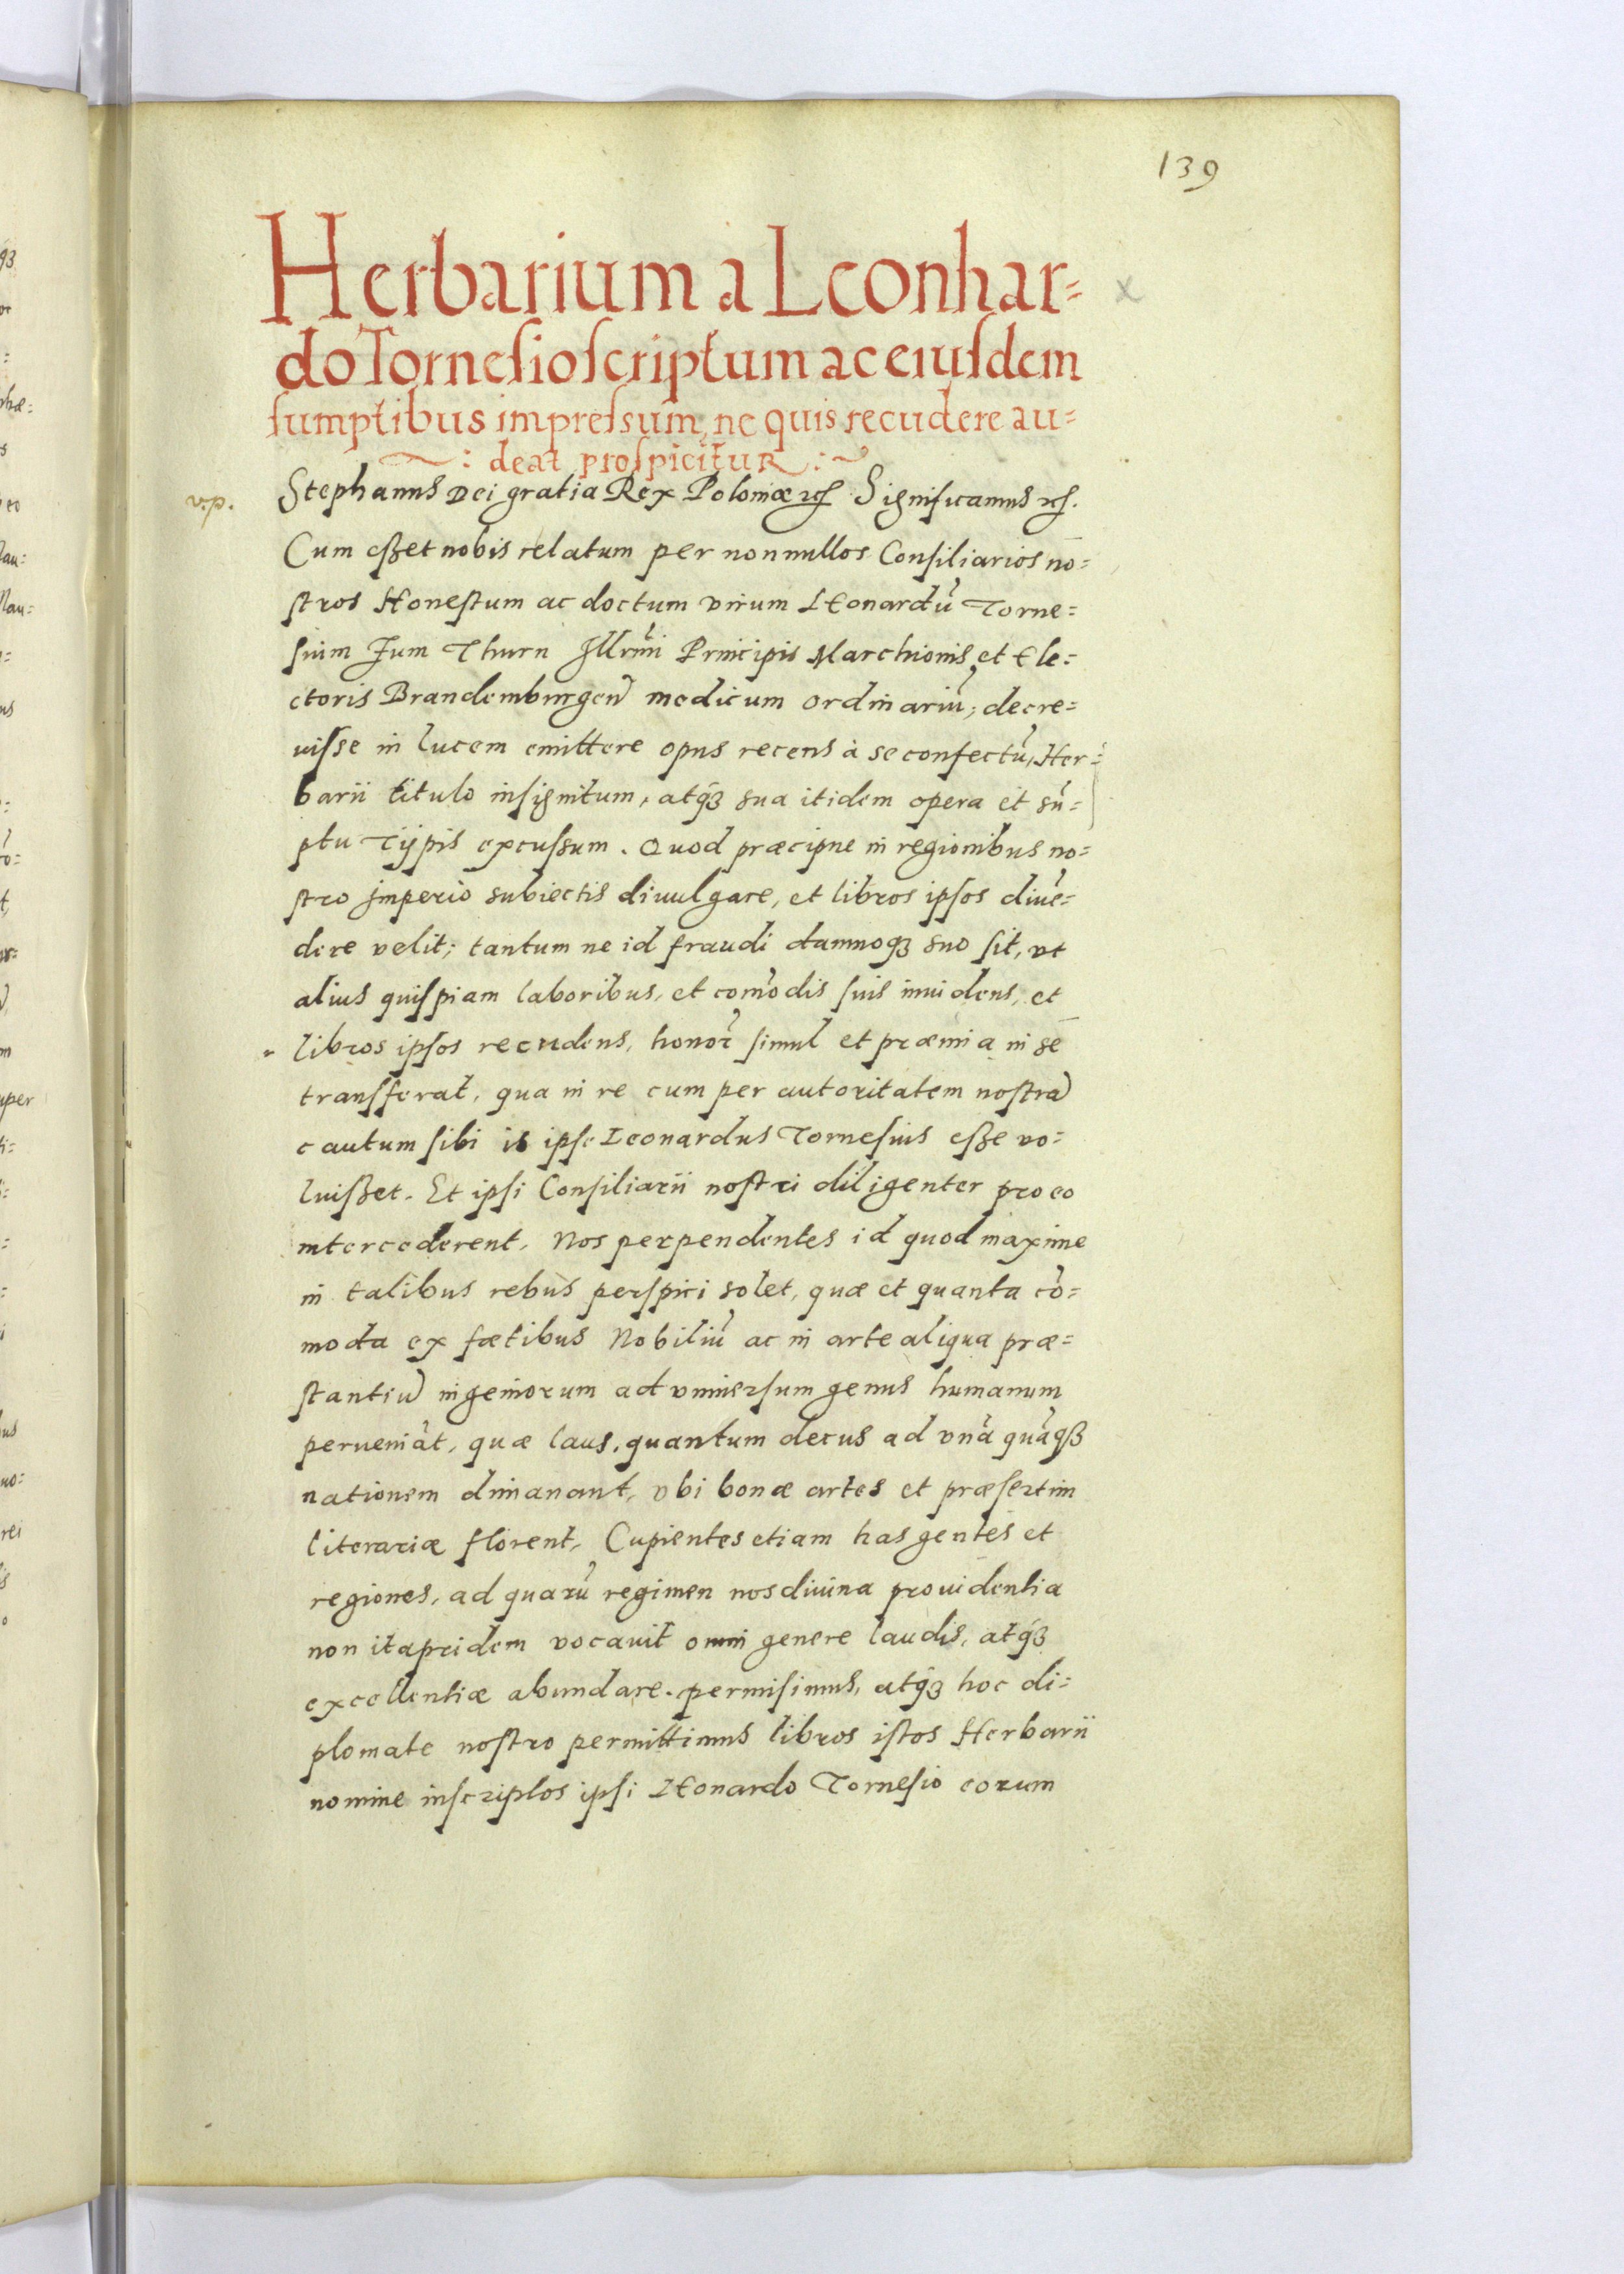 139
Herbarium a Leonhar=
do Tornesio scriptum ac eiusdem
sumptibus impressum, ne quis recudere au=
: deat prospicitur :
v.p.
Stephanus Dei gratia Rex Poloniæ etc. Significamus etc.
Cum eßet nobis relatum per nonnullos Consiliarios nō=
stros Honestum ac doctum virum Leonardū Torne=
sium Zum Thurn Illrmi Principis Marchionis et Ele=
ctoris Brandemburgen medicum ordinariū, decre=
uisse in lucem emittere opus recens à se confectū, Her=
barii titulo insignitum, atq3 sua itidem opera et sū=
ptu Tÿpis excussum. Quod præcipue in regionibus no=
stro jmperio subiectis diuulgare, et libros ipsos diuē=
dere velit; tantum ne id fraudi damnoq3 suo sit, vt
alius quispiam laboribus, et com̄odis suis inuidens, et
libros ipsos recudens, honor̄ simul et præmia in sē
transferat, qua in re cum per autoritatem nostrā
cautum sibi is ipse Leonardus Tornesius eße vo=
luißet. Et ipsi Consiliarii nostri diligenter pro eo
intercederent, Nos perpendentes id quod maxime
in talibus rebus perspici solet, quæ et quanta cō=
moda ex fœtibus Nobiliū ac in arte aliqua præ=
stantiū ingeniorum ad vniuersum genus humanum
perueniāt, quæ laus, quantum decus ad vnā quāq3
nationem dimanant, vbi bonæ artes et præsertim
literariæ florent, Cupientes etiam has gentes et
regiones, ad quarū regimen nos diuina prouidentia
non itapridem vocauit omni genere laudis, atq3
excellentiæ abundare. permisimus, atq3 hoc di=
plomate nostro permittimus libros istos Herbarii
nomine inscriptos ipsi Leonardo Tornesio eorum